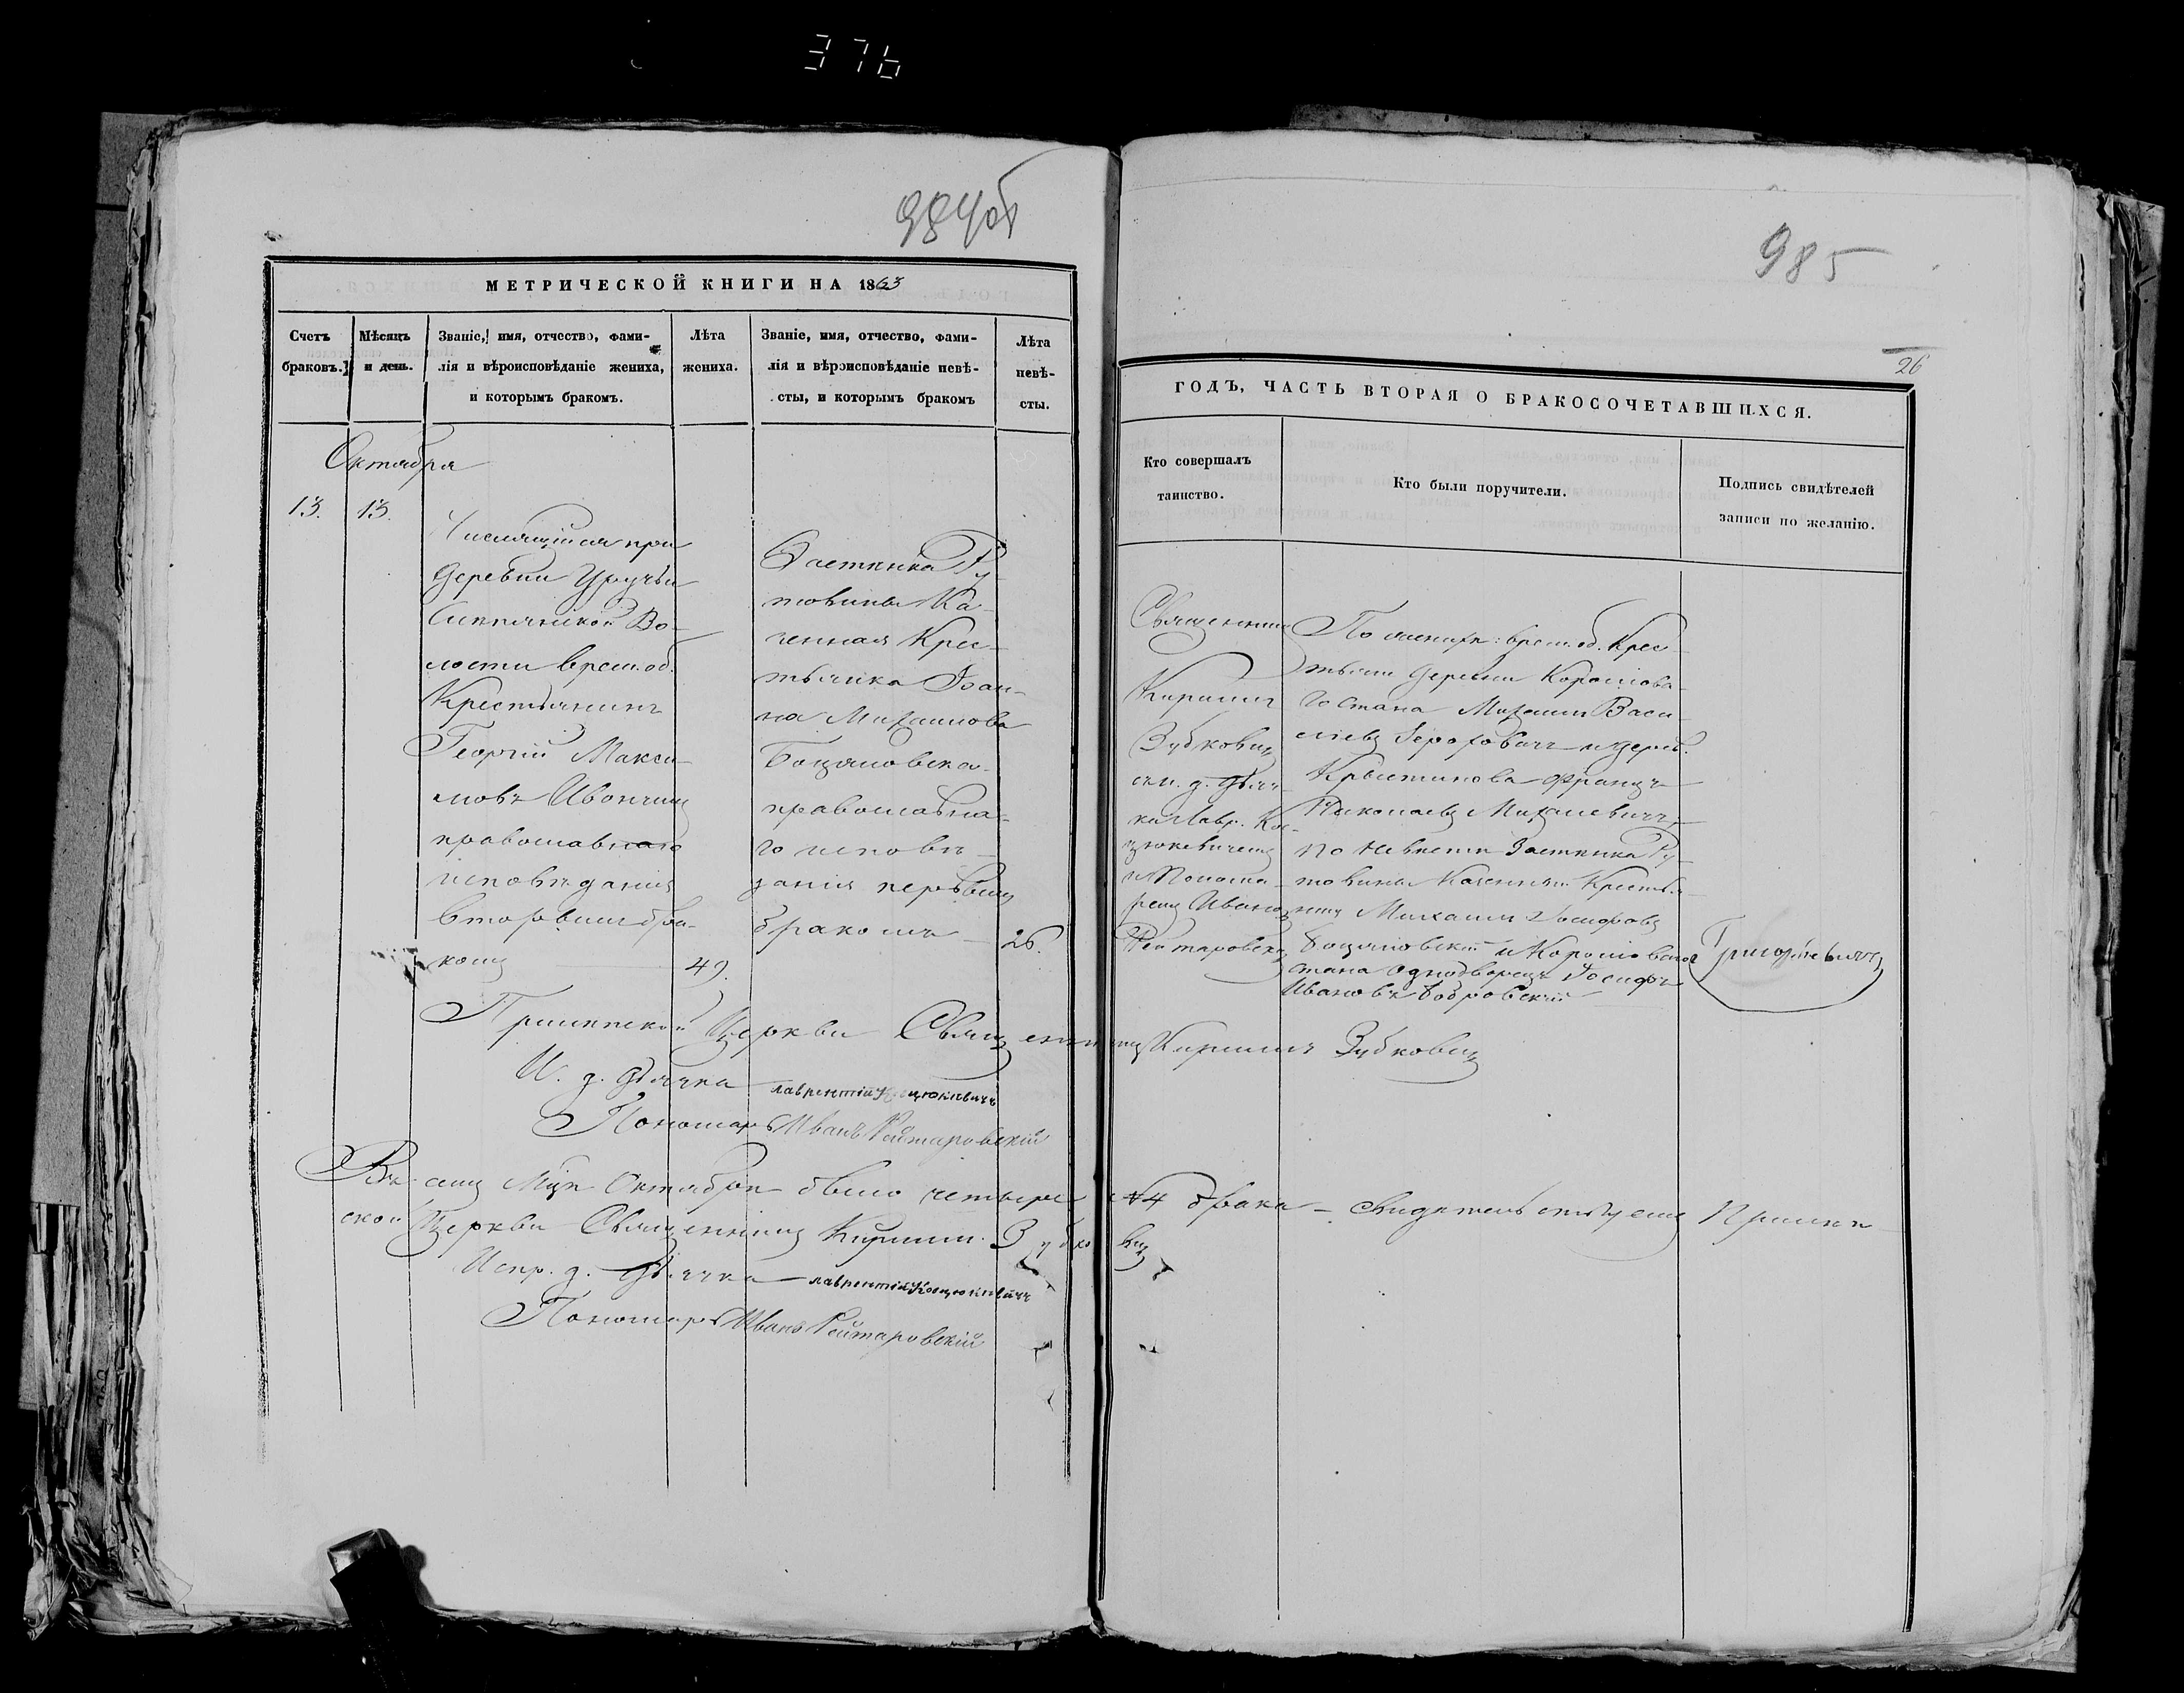 376
984об
МЕТРИЧЕСКОЙ КНИГИ НА 1863
Счетъ браковъ.
Мѣсяцъ и день.
Званіе, имя, отчество, фами-
лія и вѣроисповѣданіе жениха,
и которымъ бракомъ.
Лѣта
жениха.
Званіе, имя, отчество, фами-
лія и вѣроисповѣданіе невѣ-
сты, и которымъ бракомъ
Лѣта
невѣ-
сты.
Октября
13.
13.
Числящійся при
деревни Уручьи
Во-
лости врем. об.
Крестьянинъ
Георгій Макси-
мовъ Ивончикъ
православнаго
исповѣданія
вторымъ бра-
комъ
49.
Застѣнка Ру-
товины Ка-
зенная Крес-
тьянка Іоан-
на Михаилова
Боцяновска-
православна-
го исповѣ-
данія первымъ
бракомъ
26.
985
26
ГОДЪ, ЧАСТЬ ВТОРАЯ О БРАКОСОЧЕТАВШИХСЯ.
Кто совершалъ
таинство.
Кто были поручители.
Подпись свидѣтелей
записи по желанію.
Священникъ
Кириллъ
Зубковичъ
съ и. д. дьяч-
ка Лавр. Ко-
цюкевичемъ
и Понома-
ремъ Иваномъ
Рейтаровскимъ
По женихѣ: врем. об. Крес-
тьяне деревни
Михаилъ Васи-
ліевъ Ѳерофовичъ и дерев.
Францъ
Николаевъ Михалевичъ,
по невѣстѣ Застѣнка Ру-
товины Казенный Крестья-
нинъ Михаилъ Іосифовъ
Боцяновскій и
стана Однодворецъ Іосифъ
Ивановъ Бобровскій
Григорьевичъ
Церкви Священникъ Кириллъ Зубковичъ
И. д. дьячка Лаврентій Коцюкевичъ
Пономарь Иванъ Рейтаровскій
Въ семъ М-цѣ Октябрѣ было четыре №4 брака – свидѣтельствуемъ
ской Церкви Священникъ Кириллъ Зубковичъ
Испр. д. дьячка Лаврентій Коцюкевичъ
Пономарь Иванъ Рейтаровскій